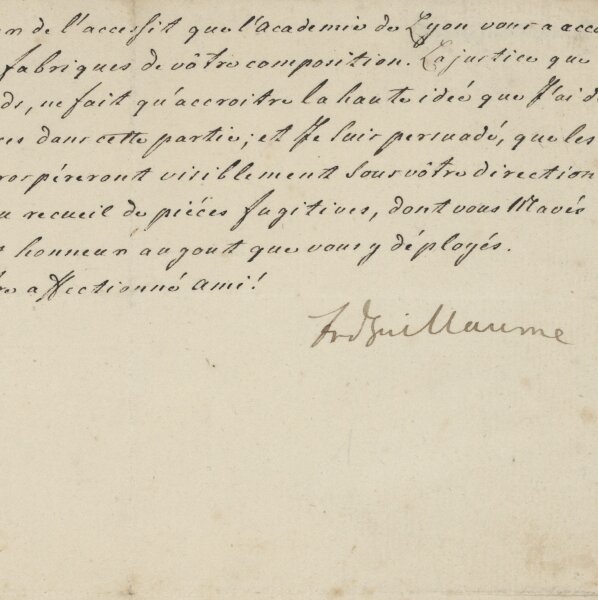 de l'accessit que l'Academie de Lyon vous a acco
fabriques de vôtre composition. La justice que
ds, ne fait qu'accroitre la haute idée que J'ai d
es dans cette partie; et Je suis persuadé, que les
rospéreront visiblement sous vôtre direction
u recueil de piéces fugitives, dont vous M'avés
t honneur au gout que vous y déployés.
re affectionné ami!
Frd Guillaume